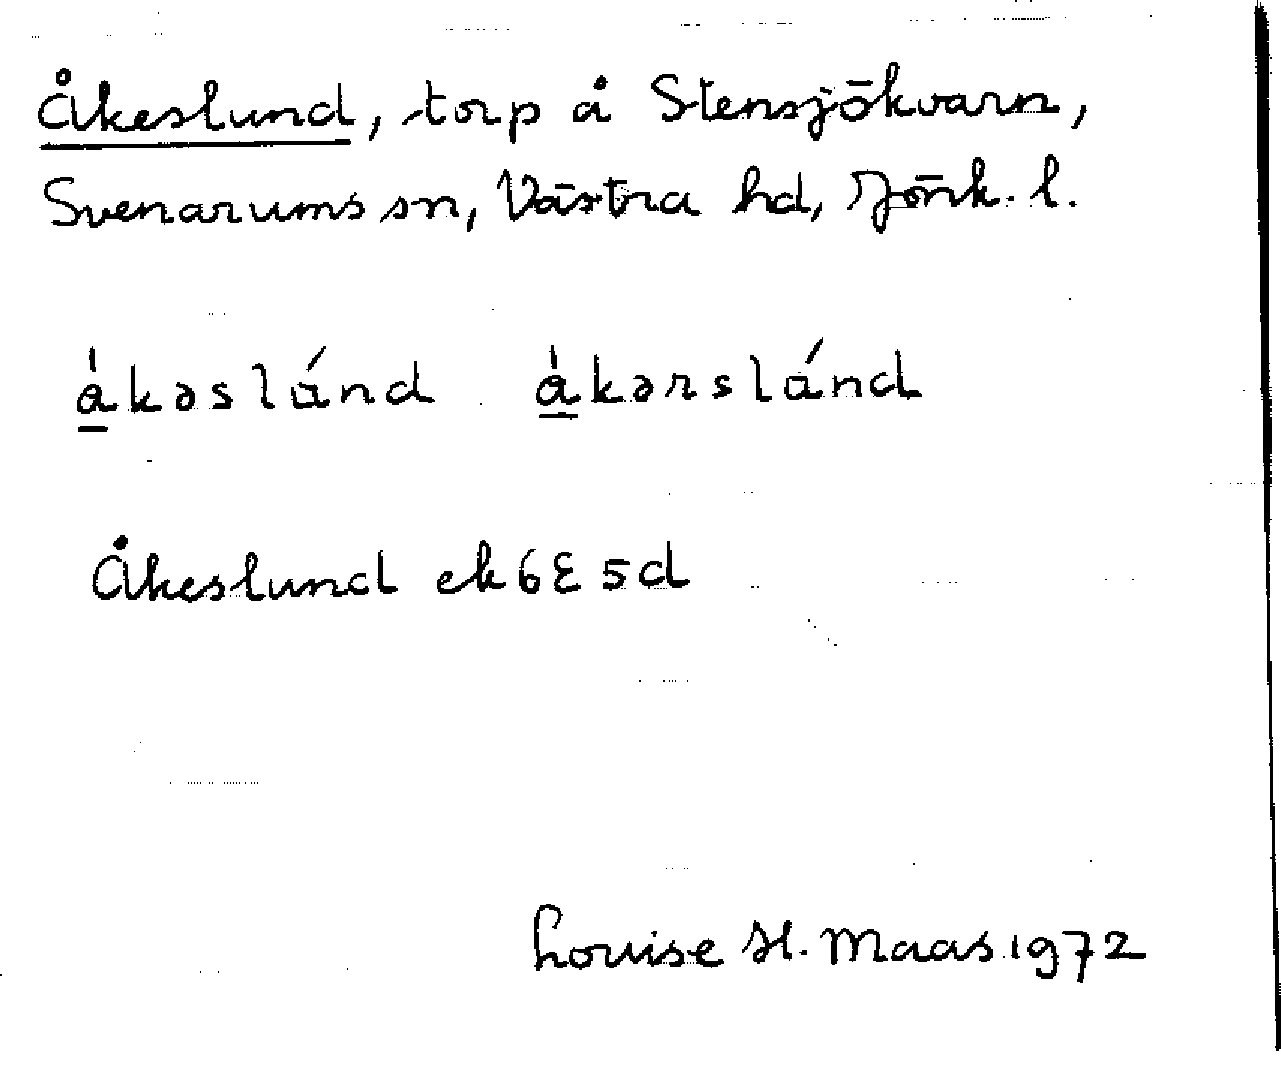 Åkeslund, torp å Stensjökvarn,
Svenarums sn, Västra hd, Jönk. l.
a̲̍kəslánd a̲̍kərslánd
Åkeslund ek 6E 5d
Louise H. Maas 1972